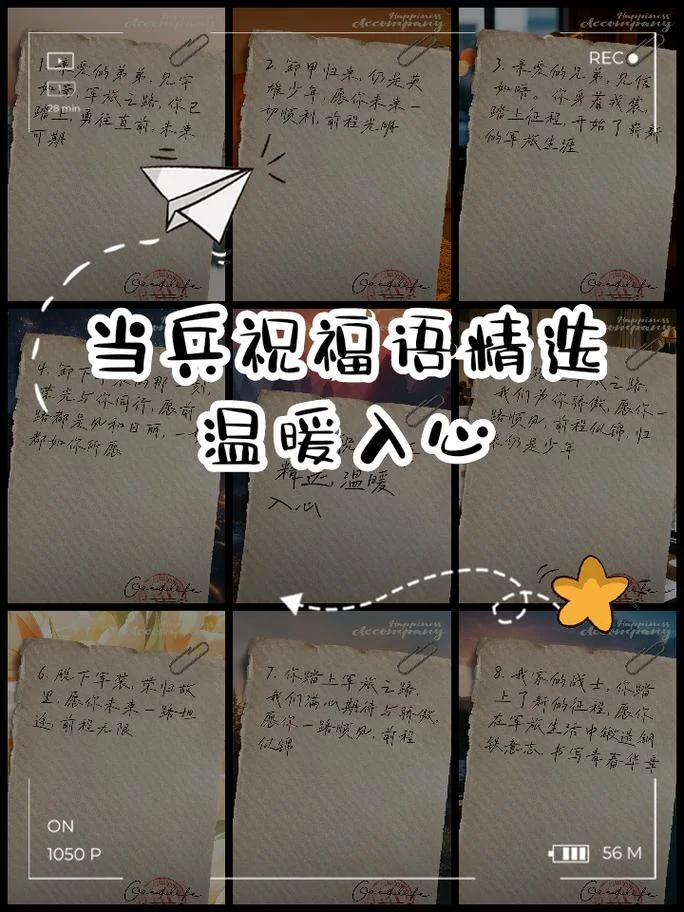 Happiness
Accompany
Happiness
Accompany
Happiness
Accompany
REC
28 min
1. 亲爱的弟弟,见字
如面,军旅之路,你已
踏上,勇往直前,未来
可期
Goodlife
2. 卸甲归来,仍是英
雄少年,愿你未来一
切顺利,前程光明
Goodlife
3. 亲爱的兄弟,见信
如晤。你身着戎装,
踏上征程,开始了崭新
的军旅生涯
Goodlife
当兵祝福语精选
温暖入心
4. 卸下
荣光与你同行,愿前
路都是风和日丽,一
都如你所愿
Goodlife
精选,温暖
入心
Goodlife
旅之路,
我们为你骄傲,愿你一
路顺风,前程似锦,归
来仍是少年
Happiness
Accompany
Happiness
Accompany
Happiness
Accompany
6. 脱下军装,荣归故
里,愿你未来一路坦
途,前程无限
Goodlife
7. 你踏上军旅之路,
我们满心期待与骄傲,
愿你一路顺风,前程
似锦
Goodlife
8. 我家的战士,你踏
上了新的征程,愿你
在军旅生活中锻造钢
铁意志,书写青春华章
Goodlife
ON
1050 P
56 M